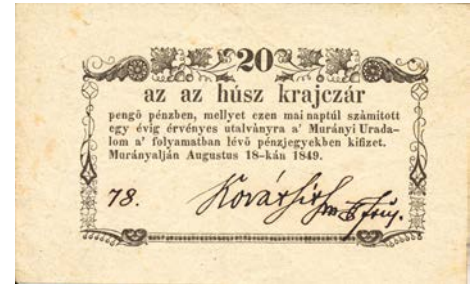 20
az az húsz krajczár
pengő pénzben, mellyet ezen mai naptúl számitott
egy évig érvényes utalványra a' Murányi Urada-
lom a' folyamatban lévő pénzjegyekben kifizet.
Murányalján Augustus 18-kán 1849.
78.